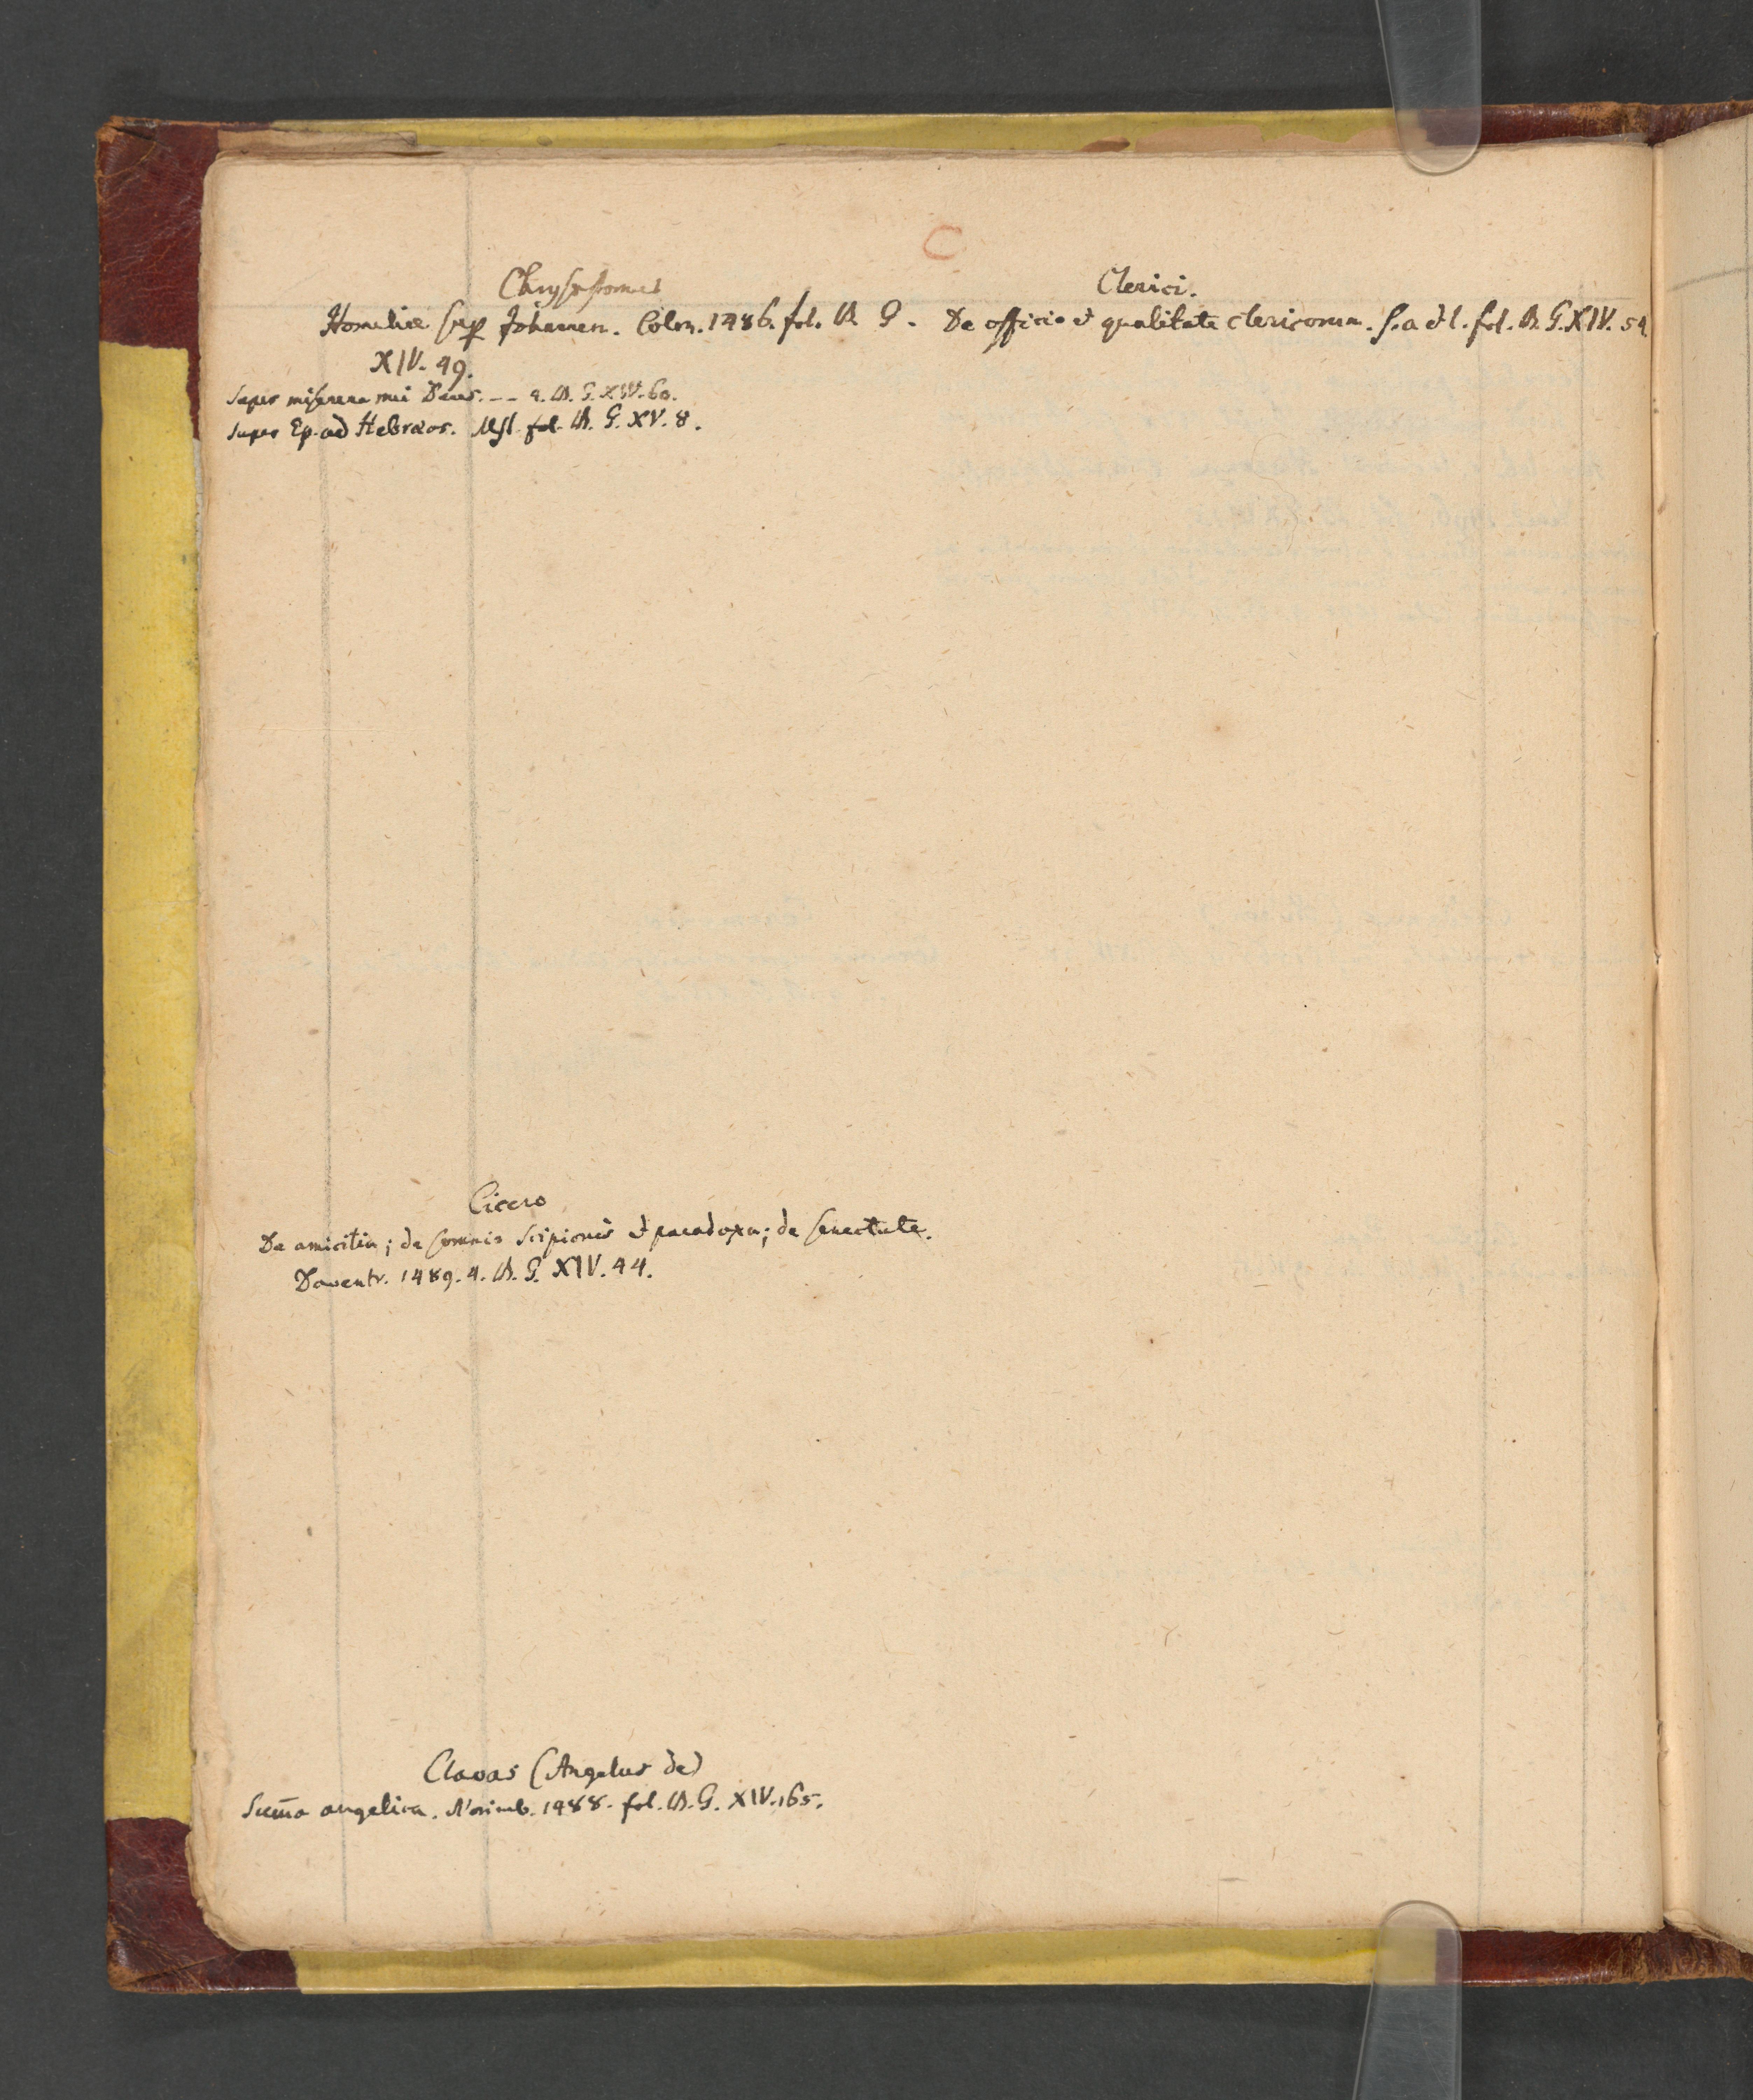 C
Chrysostomus
Homeliæ sup Johannen. Colon. 1486. fol. B. G.
XIV. 49.
super miserere mei Deus. -- 4. B. G. XIV. 60.
super Ep. ad Hebræos. Mst. fol. B. G. XV. 8.
Clerici.
De officio et qualitate clericorum. s. a et l. fol. B. G. XIV. 54.
Cicero
De amicitia; de somnio Scipionis et paradoxa; de senectute.
Daventr. 1489. 4. B. G. XIV. 44.
Clavas (Angelus de)
Sum̄a angelica. Norimb. 1488. fol. B. G. XIV. 165.